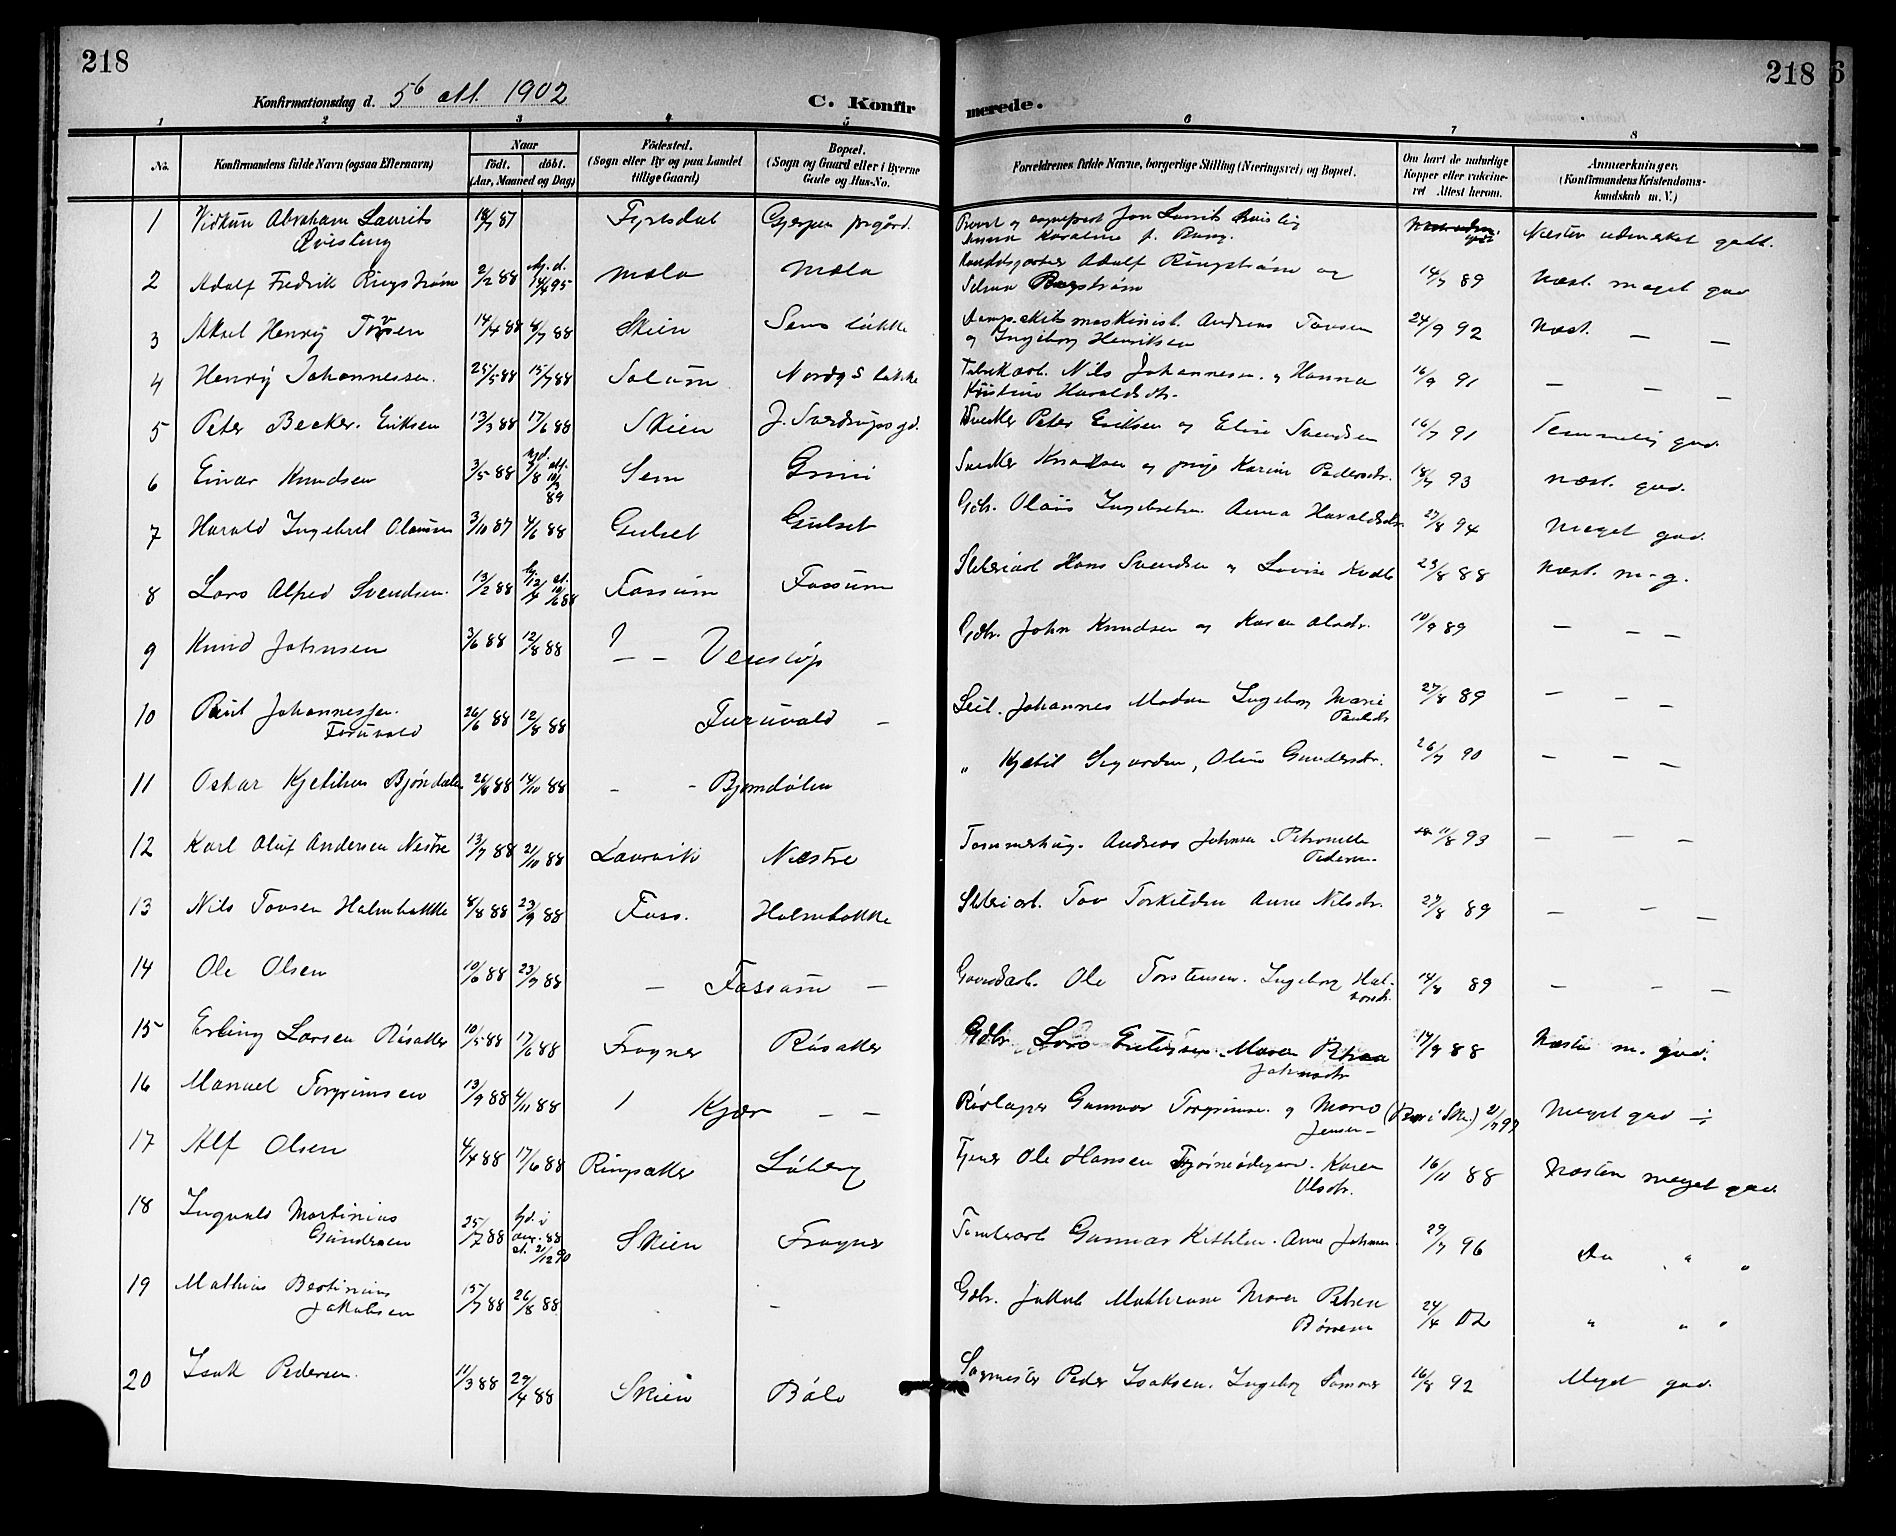 218
218
Konfirmationsdag d. 5te okt. 1902
C. Konfirmerede.
1 2 3 4 5 6 7 8
No.
Konfirmandens fulde Navn (ogsaa Efternavn)
Naar
födt. döbt.
(Aar, Maaned og Dag)
Födested.
(Sogn eller By og paa Landet
tillige Gaard)
Bopæl.
(Sogn og Gaard eller i Byerne
Gade og Hus-No.
Forældrenes fulde Navne, borgerlige Stilling (Næringsvei) og Bopæl.
Om havt de naturlige
Kopper eller vakcine-
ret Attest herom.
Anmærkninger.
(Konfirmandens Kristendoms-
kundskab m. V.)
1 Vidkun Abraham Laurits 18/7 87 Fyrisdal Gjerpen prgård. Provst og sogneprest Jon Laurits Qvisling Næsten udmærket godt.
Qvisling Anna Karoline f. Bang.
2 Adolf Fredrik Ringstrøm 2/2 88 hj. d. 14/4 95 Mæla Mæla Adolf Ringstrøm og 14/7 89 Næst. meget god
Selma Ringstrøm
3 Aksel Henry Tovsen 14/4 88 8/7 88 Skien Sems løkke Dampskibsmaskinist. Andreas Tovsen 24/9 92 Næst. — —
og Ingeborg Henriksen
4 Henry Johannessen. 25/5 88 15/7 88 Solum Nordys løkke Fabrikarb. Nils Johannesen. og Hanna 16/9 91 — —
Kristine Haraldsdtr.
5 Peter Becker. Eriksen 13/3 88 17/6 88 Skien J. Sverdrups gd. Snedker Peter Eriksen og Elise Svendsen 16/7 91 Temmelig god
6 Einar Knudsen 3/5 88 Sem Grini Snedker Knudsen og pige Karine Pedersdtr. 18/7 93 Næst. god.
7 Harald Ingebret Olausen 3/10 87 4/6 88 Gulset Gulset Gbr. Olaus Ingebretsen Anna Haraldsdtr. 27/8 94 Meget god.
8 Lars Alfred Svendsen. 13/2 88 Fossum Fossum Sliberiarb Hans Svendsen og Lovise 23/8 88 Næst. m. g.
9 Knud Johnsen 3/6 88 12/8 88 — — Venstøp Gbr. John Knudsen og Karen Olsdtr. 10/9 89 — — —
10 Paul Johannessen. 26/6 88 12/8 88 Furuvald — Seil. Johannes Madsen Ingeborg Marie 27/8 89 — — —
Furuvald Paulsdtr
11 Oskar Kjetilsen Bjørndalen 26/6 88 14/10 88 - - Bjørndalen „ Kjetil Sigurdsen, Oline Gundersdtr. 26/7 90 — — —
12 Karl Oluf Andersen Nestre 13/7 88 21/10 88 Laurvik Næstre Tømmerhug. Andreas Johnsen Petronelle 11/8 93 — — —
Pedersen.
13 Nils Tovsen Holmbakke 8/8 88 23/9 88 Foss. Holmbakke Sliberiarb. Tov Torkildsen Anne Nilsdtr. 27/8 89 — — —
14 Ole Olsen 10/6 88 23/9 88 — Fossum — Ole Torstensen. Ingeborg Hal- 14/8 89 — — —
vorsdtr.
15 Erling Larsen Råsaker 10/5 88 17/6 88 Frogner Råsaker Gbr. Lars Maren 17/9 88 Næsten m. god.
Johnsdtr
16 Manuel Torgrimsen 13/9 88 4/11 88 Kjær — — Gunnar Torgrimsen. og Maria (Bor i Ski.) Meget god
Jensen—
17 Alf Olsen 4/4 88 17/6 88 Ringsaker Løberg Tjener Ole Hansen Karen 16/11 88 Næsten meget god.
Olsdtr.
18 Ingvald Martinius 25/7 88 Skien Frogner Tomtearb Gunnar Kittilsen. Anne Johnsen 29/7 96 Do „ „
Gundersen
19 Mathias Bertinius 15/7 88 26/8 88. - - Gbr. Jakob Mathiasen Maren Petrea 24/4 02 „ „ „
Jakobsen Børresen
20 Isak Pedersen. 11/3 88 29/4 88 Skien Bøle Sagmester Peder Isaksen. Ingeborg Sommer 16/8 92 Meget god.